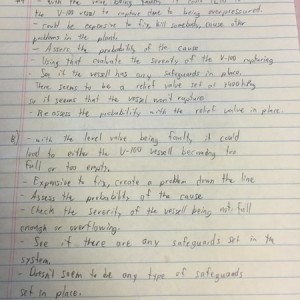 with the valve being faulty, it could lead to
the V-100 vessel to rupture due to being overpressured.
- could be expensive to fix, kill somebody, cause other
problems in the plant.
- Assess the probability of the cause
- Using that evaluate the severity of the V-100 rupturing
- See if the vessel has any safeguards in place.
There seems to be a relief valve set at kPg
so it seems that the vessel won't rupture
- Re-assess the probability with the relief valve in place.
B) - with the level valve being faulty, it could
lead to either the V-100 vessell becoming too
full or too empty.
- Expensive to fix, create a problem down the line
- Assess the probability of the cause
- Check the severity of the vessel being not full
enough or overflowing.
- See if there are any safeguards set in the
system.
- Doesn't seem to be any type of safeguards
set in place.